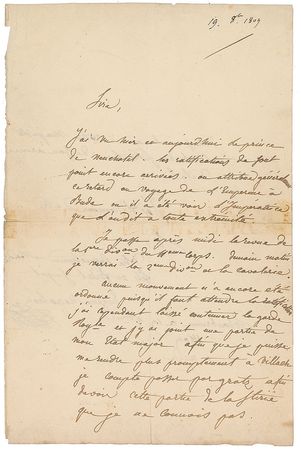 19. 8bre 1809
Sire,
J'ai vu hier et aujourd'hui le prince
de neuchatel. les ratifications ne sont
point encore arrivées. on attribue généralement
ce retard au voyage de l'Empereur à
Bude où il a été voir l'Impératrice
que l'on dit à toute extrémité.
Je passe après midi la revue de
la 1ere divon du corps. Demain matin
je verrai la 2eme divon et la cavalerie.
aucun mouvement n'a encore été
ordonné puisqu'il faut attendre la ratification
j'ai cependant laissé continuer la garde
Royle et j'y ai joint une partie de
mon État major afin que je puisse
me rendre plus promptement à Villach
je compte passer par gratz afin
de voir cette partie de la Stirie
que je ne connais pas.